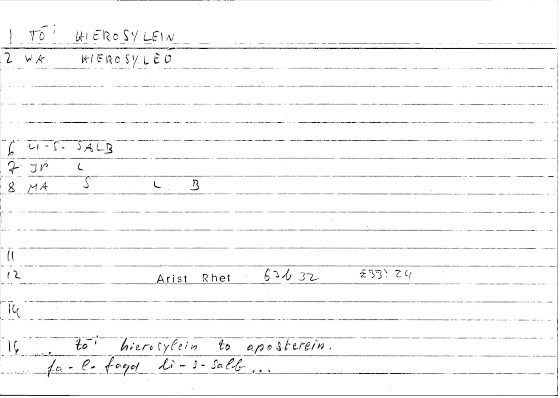 1 TÖ: HIEROSYLEIN
2 WA HIEROSYLEÖ
6 LI-S. SALB
7 JP L
8 MA S L B
11
12 Arist Rhet
14
. tö: hierosylein to aposterein.
fa-l-faqd li-s-salb...